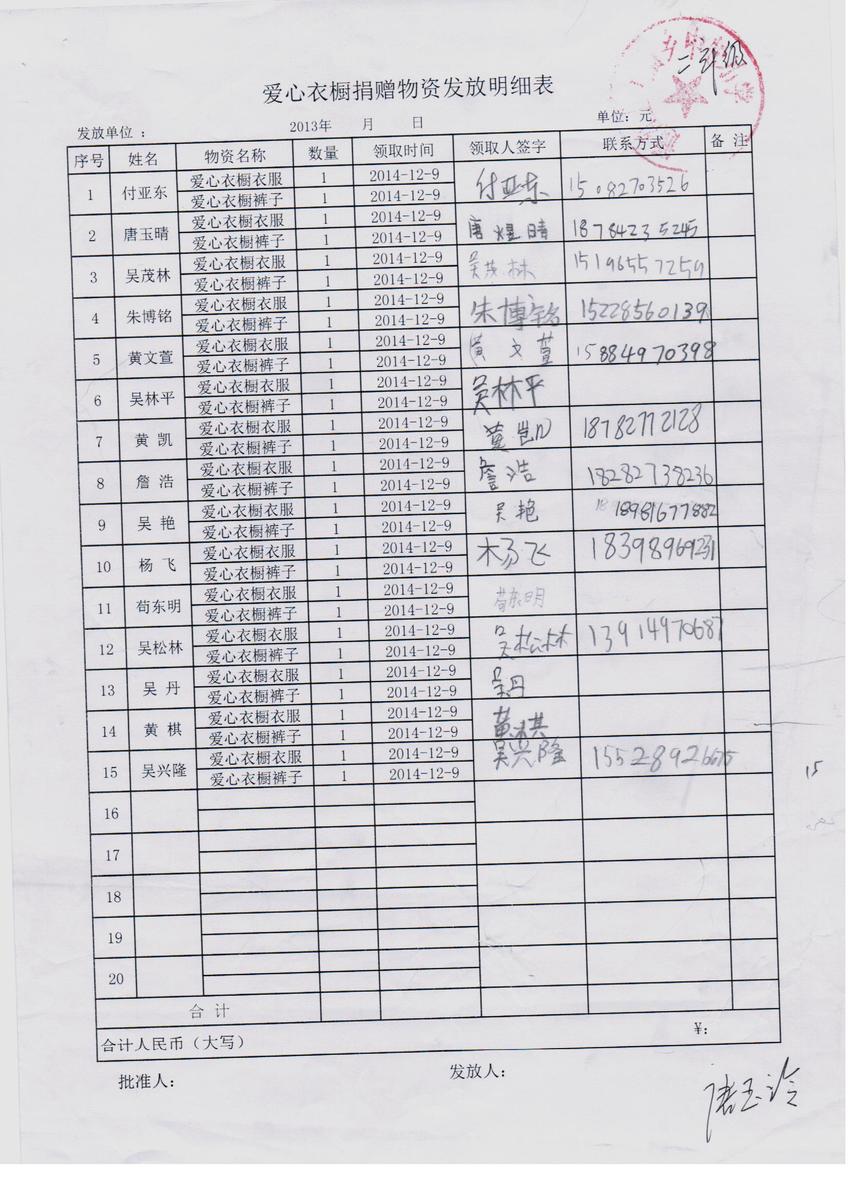 二年级
爱心衣橱捐赠物资发放明细表
发放单位 ： 2013年 月 日 单位：元
序号 姓名 物资名称 数量 领取时间 领取人签字 联系方式 备 注
1 付亚东 爱心衣橱衣服 1 2014-12-9 付亚东 15082703526
爱心衣橱裤子 1 2014-12-9
2 唐玉晴 爱心衣橱衣服 1 2014-12-9 唐煜晴 18784235245
爱心衣橱裤子 1 2014-12-9
3 吴茂林 爱心衣橱衣服 1 2014-12-9 吴茂林 15196557259
爱心衣橱裤子 1 2014-12-9
4 朱博铭 爱心衣橱衣服 1 2014-12-9 朱博铭 15228560139
爱心衣橱裤子 1 2014-12-9
5 黄文萱 爱心衣橱衣服 1 2014-12-9 黄文萱 15884970398
爱心衣橱裤子 1 2014-12-9
6 吴林平 爱心衣橱衣服 1 2014-12-9 吴林平
爱心衣橱裤子 1 2014-12-9
7 黄 凯 爱心衣橱衣服 1 2014-12-9 黄凯 18782772128
爱心衣橱裤子 1 2014-12-9
8 詹 浩 爱心衣橱衣服 1 2014-12-9 詹浩 18282738236
爱心衣橱裤子 1 2014-12-9
9 吴 艳 爱心衣橱衣服 1 2014-12-9 吴艳 18981677882
爱心衣橱裤子 1 2014-12-9
10 杨 飞 爱心衣橱衣服 1 2014-12-9 杨飞 18398969231
爱心衣橱裤子 1 2014-12-9
11 苟东明 爱心衣橱衣服 1 2014-12-9 苟东明
爱心衣橱裤子 1 2014-12-9
12 吴松林 爱心衣橱衣服 1 2014-12-9 吴松林 13914970687
爱心衣橱裤子 1 2014-12-9
13 吴 丹 爱心衣橱衣服 1 2014-12-9 吴丹
爱心衣橱裤子 1 2014-12-9
14 黄 棋 爱心衣橱衣服 1 2014-12-9 黄棋
爱心衣橱裤子 1 2014-12-9
15 吴兴隆 爱心衣橱衣服 1 2014-12-9 吴兴隆
爱心衣橱裤子 1 2014-12-9
15
16
17
18
19
20
合 计
合计人民币（大写） ¥：
批准人： 发放人：